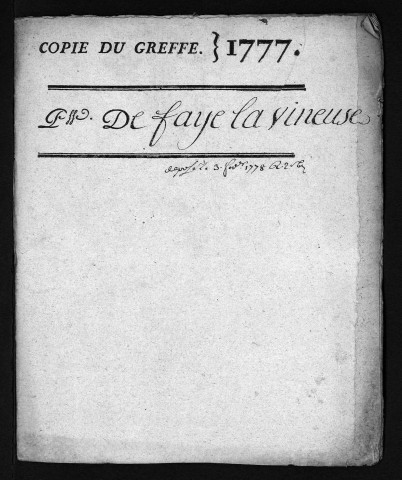 COPIE DU GREFFE. } 1777.
Psse. De faye la vineuse
deposé le 3. fevr 1778